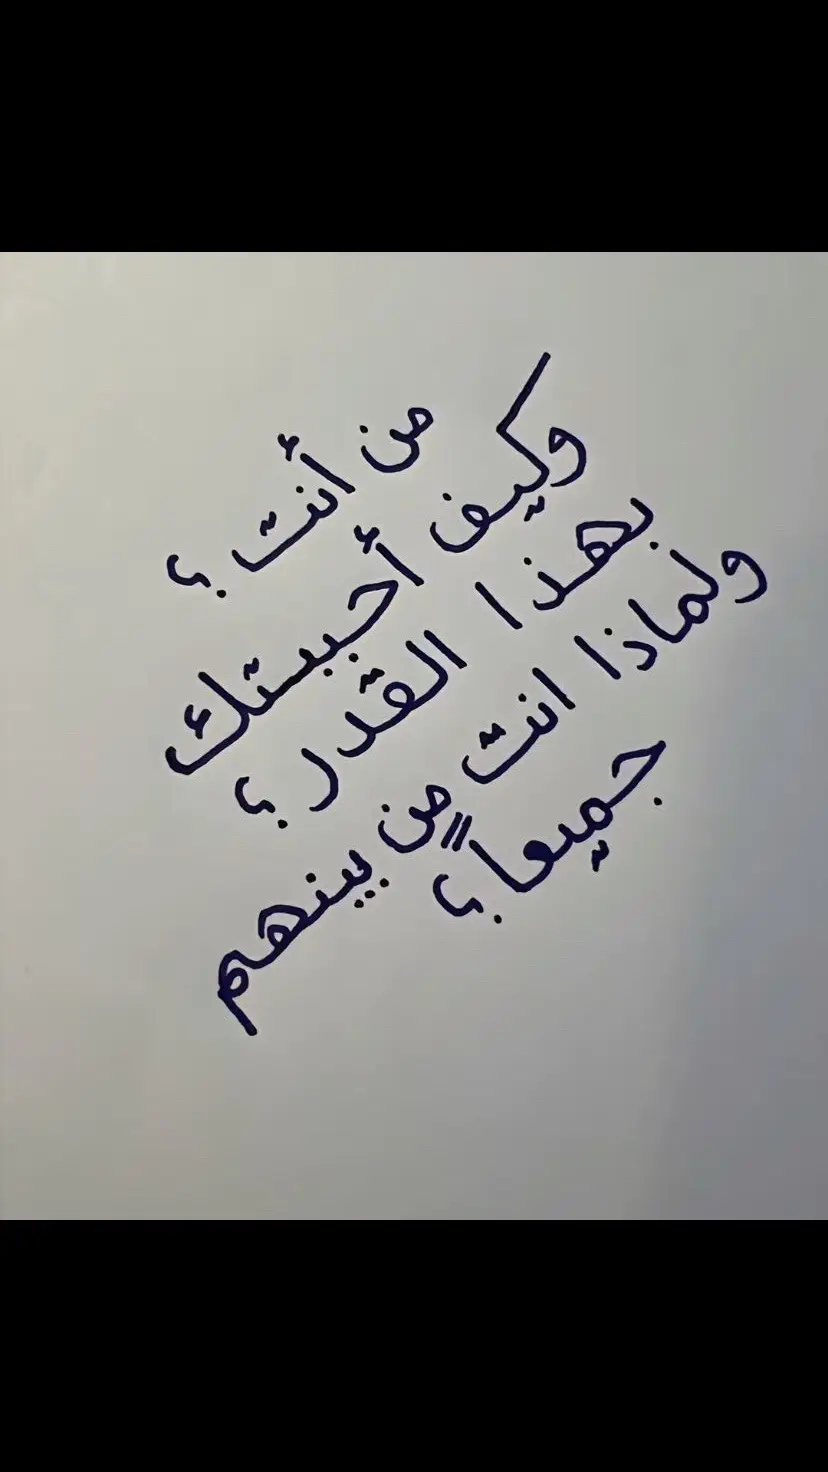 من أنت ؟
وكيف أحببتك
بهذا القدر ؟
ولماذا انت من بينهم
جميعاً ؟